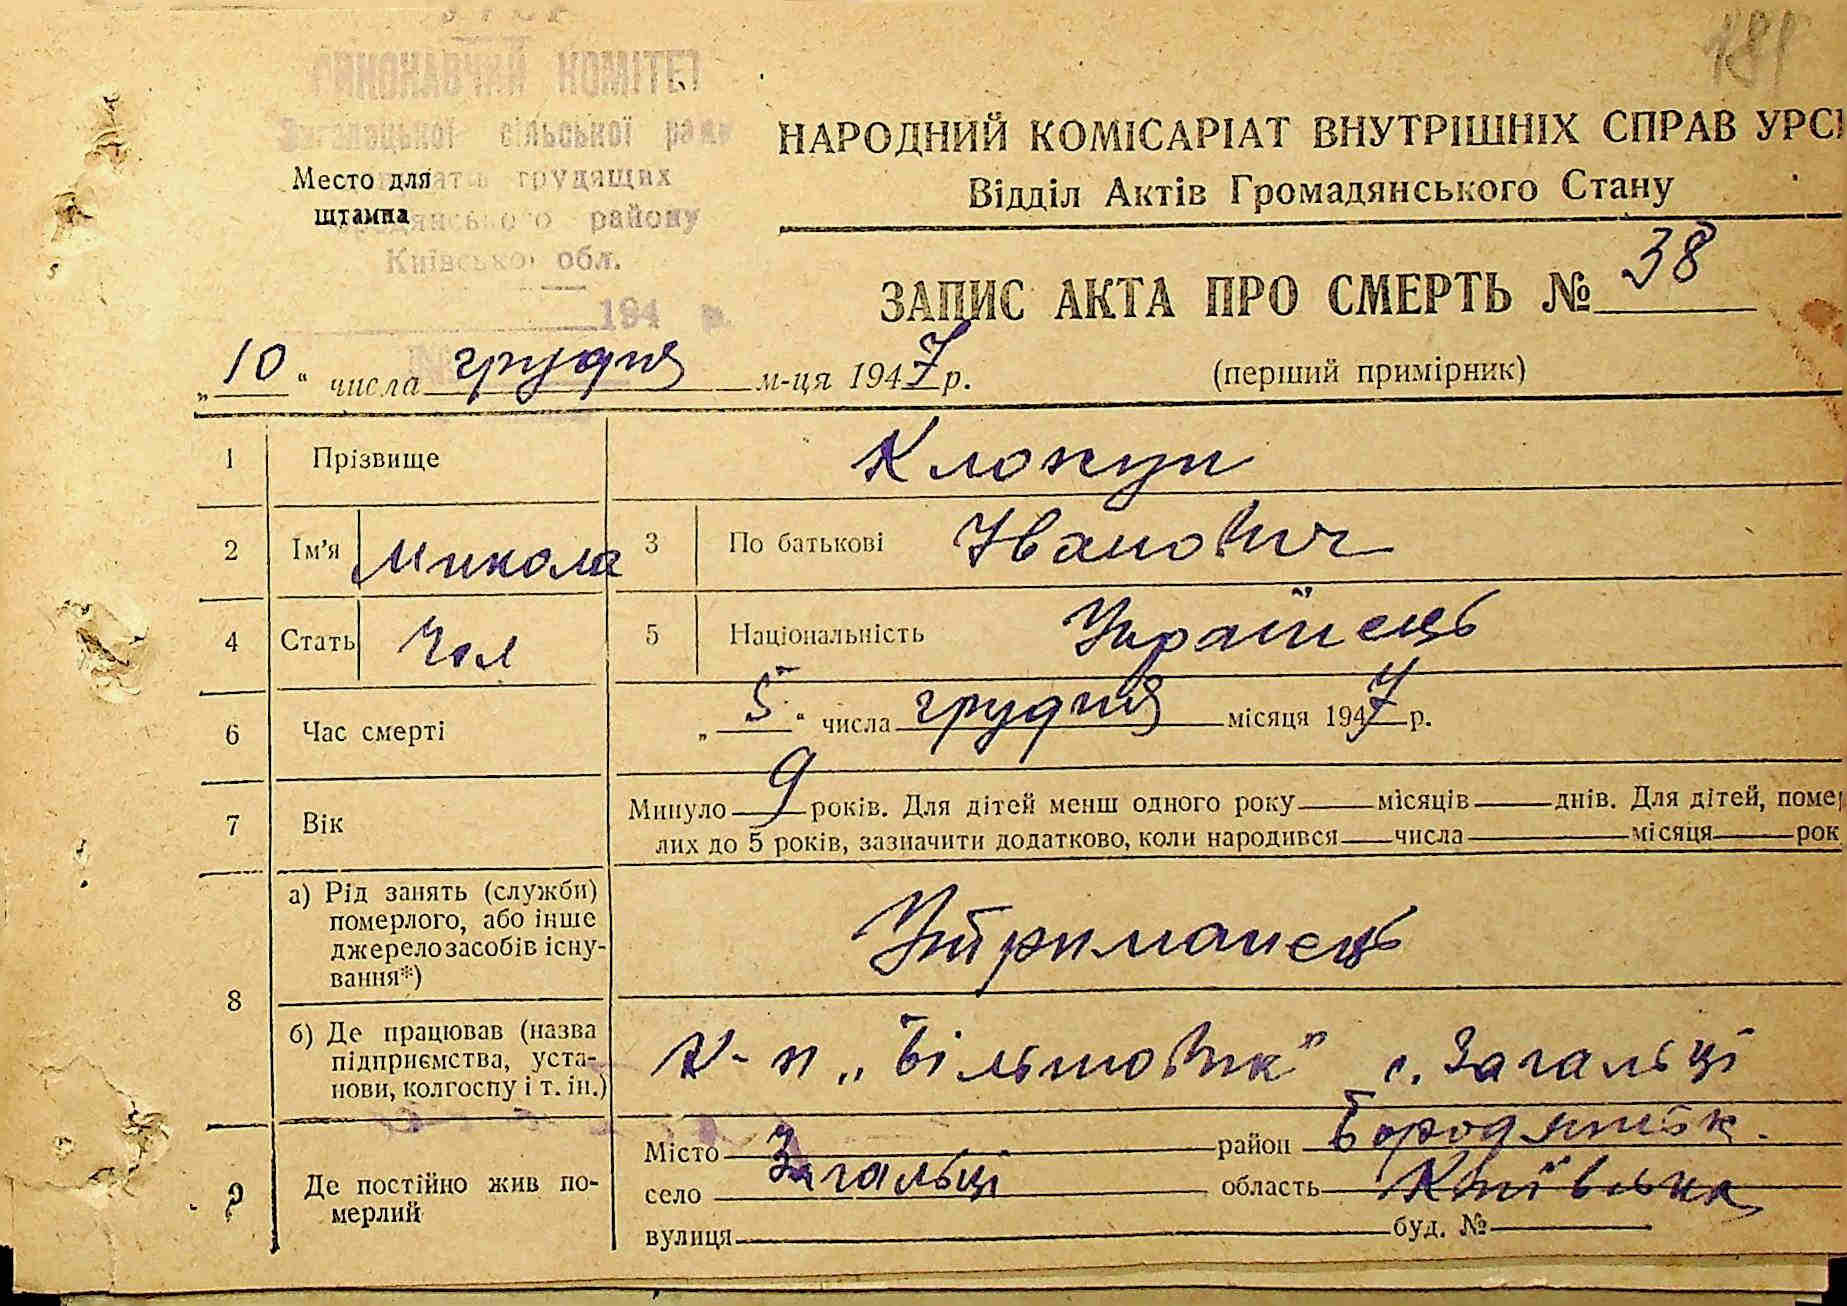 УРСР
ВИКОНАВЧИЙ КОМІТЕТ
Загалецької сільської ради
депутатів трудящих
Бородянського району
Київської обл.
194 р.
№
Место для
штампа
191
НАРОДНИЙ КОМІСАРІАТ ВНУТРІШНІХ СПРАВ УРСР
Відділ Актів Громадянського Стану
ЗАПИС АКТА ПРО СМЕРТЬ № 38
„10“ числа грудня м-ця 1947 р. (перший примірник)
1 Прізвище Клокун
2 Ім'я Микола 3 По батькові Іванович
4 Стать Чол 5 Національність Українець
6 Час смерті „5“ числа грудня місяця 1947 р.
7 Вік Минуло 9 років. Для дітей менш одного року місяців днів. Для дітей, помер
лих до 5 років, зазначити додатково, коли народився числа місяця рок
8 а) Рід занять (служби)
померлого, або інше
джерело засобів існу-
вання*)
Утриманець
б) Де працював (назва
підприємства, уста-
нови, колгоспу і т. ін.)
К-п „Більшовик" с. Загальці
9 Де постійно жив по-
мерлий
Місто район Бородянськ.
село Загальці область Київська
вулиця буд. №